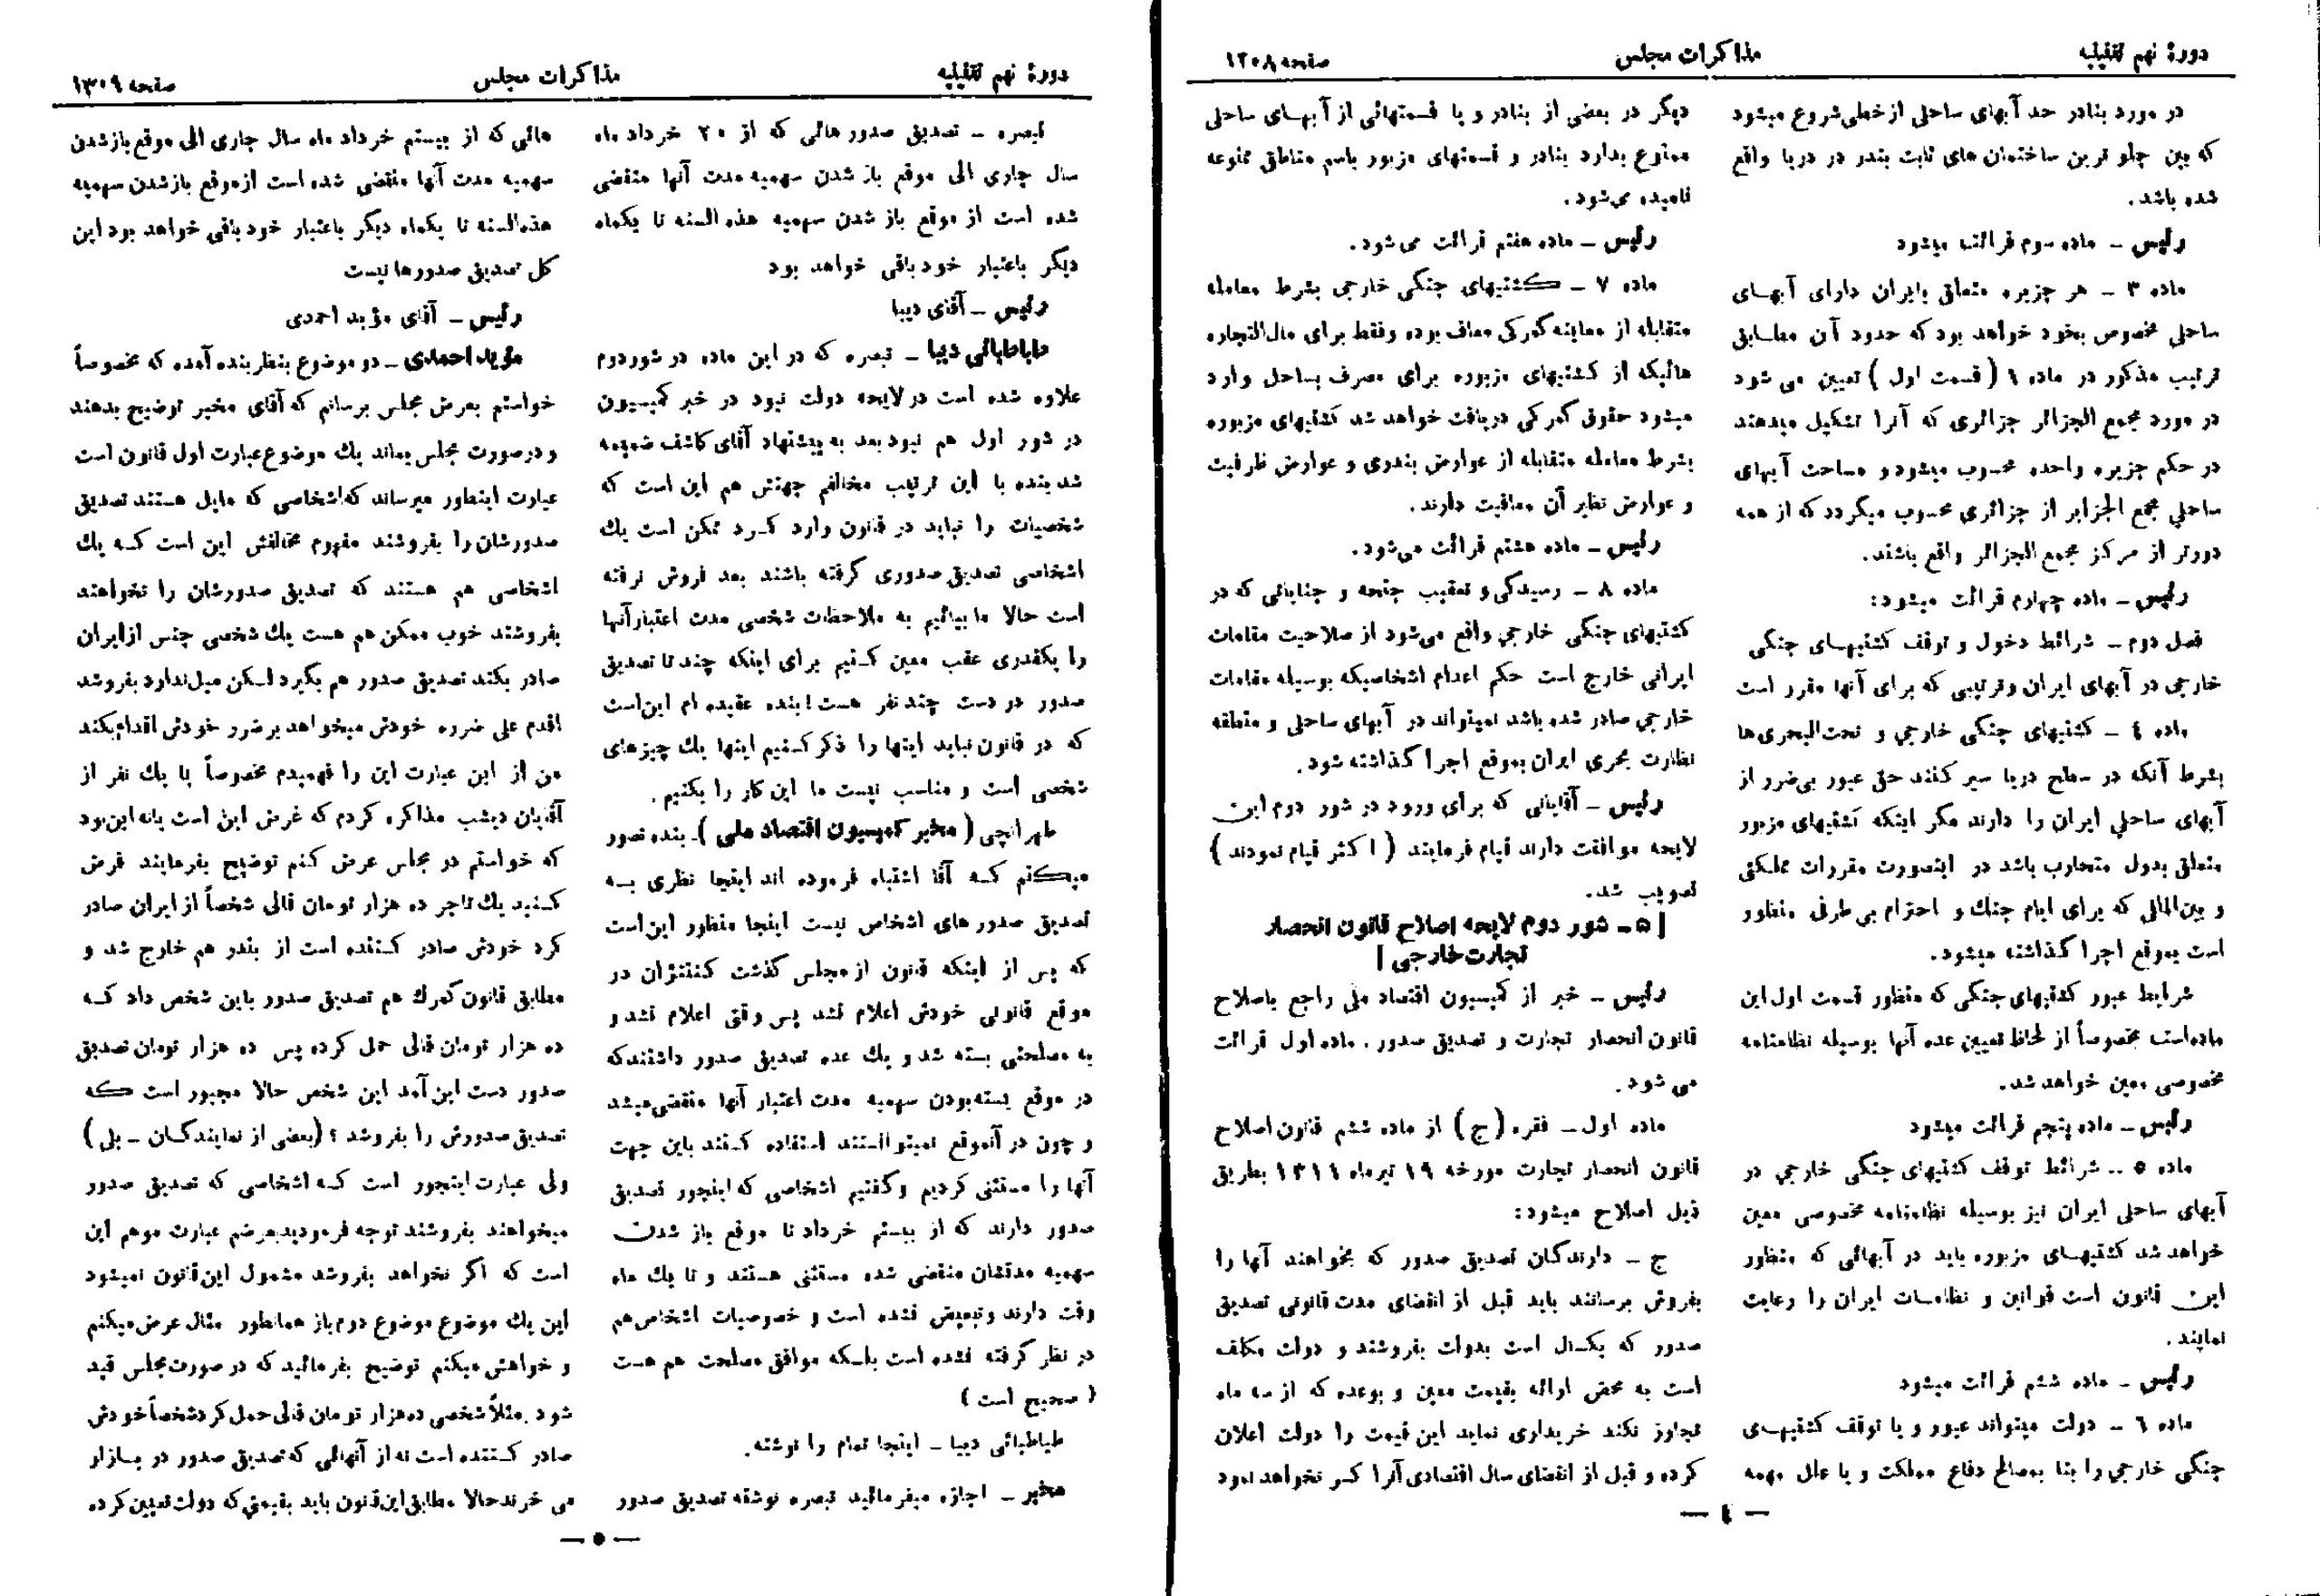 دورهٔ نهم تقنینیه
مذاکرات مجلس
صفحه ۱۳۰۸
در مورد بنادر حد آبهای ساحلی از خطی شروع میشود
که بین جلو ترین ساختمان های ثابت بندر در دریا واقع
شده باشد.
رئیس - ماده سوم قرائت میشود
ماده ۳ - هر جزیره متعلق بایران دارای آبهای
ساحلی مخصوص بخود خواهد بود که حدود آن مطابق
ترتیب مذکور در ماده ۱ (قسمت اول) تعیین می شود
در مورد مجمع الجزائر جزائری که آنرا تشکیل میدهند
در حکم جزیره واحده محسوب میشود و مساحت آبهای
ساحلی مجمع الجزایر از جزائری محسوب میگردد که از همه
دورتر از مرکز مجمع الجزائر واقع باشند.
رئیس - ماده چهارم قرائت میشود:
فصل دوم - شرائط دخول و توقف کشتیهای جنگی
خارجی در آبهای ایران و ترتیبی که برای آنها مقرر است
ماده ٤ - کشتیهای جنگی خارجی و تحت البحری ها
بشرط آنکه در سطح دریا سیر کنند حق عبور بی ضرر از
آبهای ساحلی ایران را دارند مگر اینکه کشتیهای مزبور
متعلق بدول متحارب باشد در اینصورت مقررات مملکتی
و بین المللی که برای ایام جنگ و احترام بی طرفی منظور
است بموقع اجرا گذاشته میشود.
شرایط عبور کشتیهای جنگی که منظور قسمت اول این
ماده است مخصوصاً از لحاظ تعیین عده آنها بوسیله نظامنامه
مخصوصی معین خواهد شد.
رئیس - ماده پنجم قرائت میشود
ماده ۵ - شرائط توقف کشتیهای جنگی خارجی در
آبهای ساحلی ایران نیز بوسیله نظامنامه مخصوصی معین
خواهد شد کشتیهای مزبوره باید در آبهائی که منظور
این قانون است قوانین و نظامات ایران را رعایت
نمایند.
رئیس - ماده ششم قرائت میشود
ماده ٦ - دولت میتواند عبور و یا توقف کشتیهای
جنگی خارجی را بنا بمصالح دفاع مملکت و یا علل مهمه
دیگر در بعضی از بنادر و یا قسمتهائی از آبهای ساحلی
ممنوع بدارد بنادر و قسمتهای مزبور باسم مناطق ممنوعه
نامیده می شود.
رئیس - ماده هفتم قرائت می شود.
ماده ۷ - کشتیهای جنگی خارجی بشرط معامله
متقابله از معاینه گمرکی معاف بوده و فقط برای مال التجاره
هائیکه از کشتیهای مزبوره برای مصرف بساحل وارد
میشود حقوق گمرکی دریافت خواهد شد کشتیهای مزبوره
بشرط معامله متقابله از عوارض بندری و عوارض ظرفیت
و عوارض نظیر آن معافیت دارند.
رئیس - ماده هشتم قرائت می شود.
ماده ۸ - رسیدگی و تعقیب جنحه و جنایاتی که در
کشتیهای جنگی خارجی واقع می شود از صلاحیت مقامات
ایرانی خارج است حکم اعدام اشخاصیکه بوسیله مقامات
خارجی صادر شده باشد نمیتواند در آبهای ساحلی و منطقه
نظارت بحری ایران بموقع اجرا گذاشته شود.
رئیس - آقایانی که برای ورود در شور دوم این
لایحه موافقت دارند قیام فرمایند (اکثر قیام نمودند)
تصویب شد.
[۵ - شور دوم لایحه اصلاح قانون انحصار
تجارت خارجی]
رئیس - خبر از کمیسیون اقتصاد ملی راجع باصلاح
قانون انحصار تجارت و تصدیق صدور. ماده اول قرائت
می شود.
ماده اول - فقره (ج) از ماده ششم قانون اصلاح
قانون انحصار تجارت مورخه ۱۹ تیرماه ۱۳۱۱ بطریق
ذیل اصلاح میشود:
ج - دارندگان تصدیق صدور که بخواهند آنها را
بفروش برسانند باید قبل از انقضای مدت قانونی تصدیق
صدور که یکسال است بدولت بفروشند و دولت مکلف
است به محض ارائه بقیمت معین و بوعده که از سه ماه
تجاوز نکند خریداری نماید این قیمت را دولت اعلان
کرده و قبل از انقضای سال اقتصادی آنرا کسر نخواهد نمود
— ٤ —
دورهٔ نهم تقنینیه
مذاکرات مجلس
صفحه ۱۳۰۹
تبصره - تصدیق صدور هائی که از ۲۰ خرداد ماه
سال جاری الی موقع باز شدن سهمیه مدت آنها منقضی
شده است از موقع باز شدن سهمیه هذه السنه تا یکماه
دیگر باعتبار خود باقی خواهد بود
رئیس - آقای دیبا
طباطبائی دیبا - تبصره که در این ماده در شور دوم
علاوه شده است در لایحه دولت نبود در خبر کمیسیون
در شور اول هم نبود بعد به پیشنهاد آقای کاشف ضمیمه
شد بنده با این ترتیب مخالفم جهتش هم این است که
شخصیات را نباید در قانون وارد کرد ممکن است یك
اشخاصی تصدیق صدوری گرفته باشند بعد فروش نرفته
است حالا ما بیائیم به ملاحظات شخصی مدت اعتبار آنها
را یکقدری عقب معین کنیم برای اینکه چند تا تصدیق
صدور در دست چند نفر هست! بنده عقیده ام این است
که در قانون نباید اینها را ذکر کنیم اینها یك چیزهای
شخصی است و مناسب نیست ما این کار را بکنیم.
طهرانچی (مخبر کمیسیون اقتصاد ملی) - بنده تصور
میکنم که آقا اشتباه فرموده اند اینجا نظری به
تصدیق صدور های اشخاص نیست اینجا منظور این است
که پس از اینکه قانون از مجلس گذشت کنتنژان در
موقع قانونی خودش اعلام نشد پس وقتی اعلام نشد و
به مصلحتی بسته شد و یك عده تصدیق صدور داشتند که
در موقع بسته بودن سهمیه مدت اعتبار آنها منقضی میشد
و چون در آنموقع نمیتوانستند استفاده کنند باین جهت
آنها را مستثنی کردیم و گفتیم اشخاصی که اینجور تصدیق
صدور دارند که از بیستم خرداد تا موقع باز شدن
سهمیه مدتشان منقضی شده مستثنی هستند و تا یك ماه
وقت دارند و تبعیض نشده است و خصوصیات اشخاص هم
در نظر گرفته نشده است بلکه موافق مصلحت هم هست
(صحیح است)
طباطبائی دیبا - اینجا تمام را نوشته.
مخبر - اجازه میفرمائید تبصره نوشته تصدیق صدور
هائی که از بیستم خرداد ماه سال جاری الی موقع باز شدن
سهمیه مدت آنها منقضی شده است از موقع باز شدن سهمیه
هذه السنه تا یکماه دیگر باعتبار خود باقی خواهد بود این
کل تصدیق صدورها نیست
رئیس - آقای مؤید احمدی
مؤید احمدی - دو موضوع بنظر بنده آمده که مخصوصاً
خواستم بعرض مجلس برسانم که آقای مخبر توضیح بدهند
و در صورت مجلس بماند یك موضوع عبارت اول قانون است
عبارت اینطور میرساند که اشخاصی که مایل هستند تصدیق
صدورشان را بفروشند مفهوم مخالفش این است که یك
اشخاصی هم هستند که تصدیق صدورشان را نخواهند
بفروشند خوب ممکن هم هست یك شخصی جنس از ایران
صادر بکند تصدیق صدور هم بگیرد لکن میل ندارد بفروشد
اقدم علی ضرره خودش میخواهد بر ضرر خودش اقدام بکند
من از این عبارت این را فهمیدم مخصوصاً با یك نفر از
آقایان دیشب مذاکره کردم که غرض این است یا نه این بود
که خواستم در مجلس عرض کنم توضیح بفرمایند فرض
کنید یك تاجر ده هزار تومان قالی شخصاً از ایران صادر
کرد خودش صادر کننده است از بندر هم خارج شد و
مطابق قانون گمرك هم تصدیق صدور باین شخص داد که
ده هزار تومان قالی حمل کرده پس ده هزار تومان تصدیق
صدور دست این آمد این شخص حالا مجبور است که
تصدیق صدورش را بفروشد؟ (بعضی از نمایندگان - بلی)
ولی عبارت اینجور است که اشخاصی که تصدیق صدور
میخواهند بفروشند توجه فرمودید بعرضم عبارت موهم این
است که اگر نخواهد بفروشد مشمول این قانون نمیشود
این یك موضوع موضوع دوم باز همانطور مثال عرض میکنم
و خواهش میکنم توضیح بفرمائید که در صورت مجلس قید
شود. مثلاً شخصی ده هزار تومان قالی حمل کرد شخصاً خودش
صادر کننده است نه از آنهائی که تصدیق صدور در بازار
می خرند حالا مطابق این قانون باید بقیمتی که دولت تعیین کرده
— ۵ —